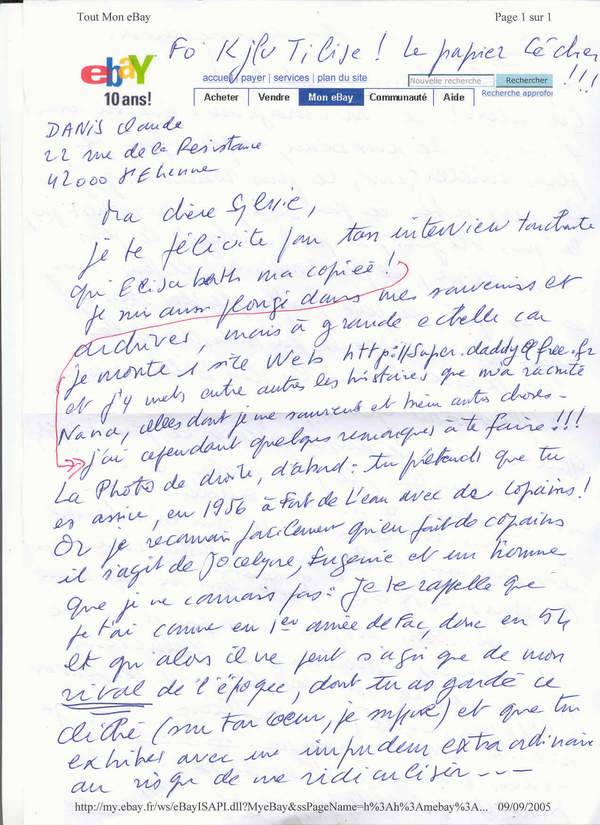 Tout Mon eBay Page 1 sur 1
Fô KJ'lu Tilise ! Le papier Cé cher !!!
ebaY
10 ans!
accueil payer | services | plan du site
Nouvelle recherche Rechercher
Acheter Vendre Mon eBay Communauté Aide Recherche approfon
DANIS Claude
22 rue de la Résistance
42000 St Etienne
Ma chère Sylvie,
je te félicite pour ton interview touchante
qu'Elisabeth m'a copiée !
Je suis aussi plongé dans mes souvenirs et
archives, mais à grande echelle car
je monte 1 site Web http://super.daddy@free.fr
et j'y mets entre autres les histoires que m'a raconté
Nana, celles dont je me souviens et bien autres choses -
j'ai cependant quelques remarques à te faire !!!
La Photo de droite, d'abord : tu prétends que tu
es assise, en 1956 à Fort de L'eau avec des copains !
Or je reconnais facilement qu'en fait de copains
il s'agit de Jocelyne, Eugenie et un homme
que je ne connais pas : Je te rappelle que
je t'ai connue en 1ere année de Fac, donc en 54
et qu'alors il ne peut s'agir que de mon
rival de l'époque, dont tu as gardé ce
cliché (sur ton coeur, je suppose) et que tu
exhibes avec une impudeur extraordinaire
au risque de me ridiculiser - - -
http://my.ebay.fr/ws/eBayISAPI.dll?MyeBay&ssPageName=h%3Ah%3Amebay%3A... 09/09/2005